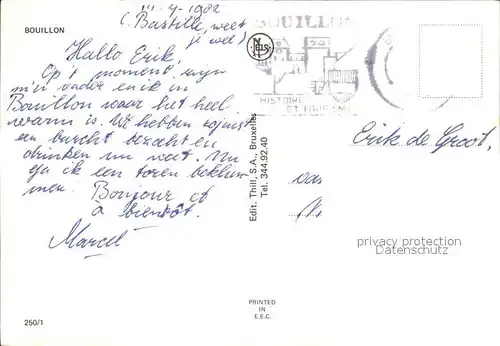 14-7-1982
(Bastille, weet
je wel)
BOUILLON
Hallo Erik,
Op 't moment zijn
m'n ouders en ik in
Bouillon waar het heel
warm is. We hebben zojuist
een burcht bezocht en
drinken nu wat. Nu
ga ik een toren beklim-
men. Bonjour et
à bientôt.
Marcel
250/1
NELS
Edit. Thill, S.A., Bruxelles
Tel. 344.92.40
PRINTED
IN
E.E.C.
BOUILLON
HISTOIRE
ET TOURISME
Erik de Groot,
privacy protection
Datenschutz